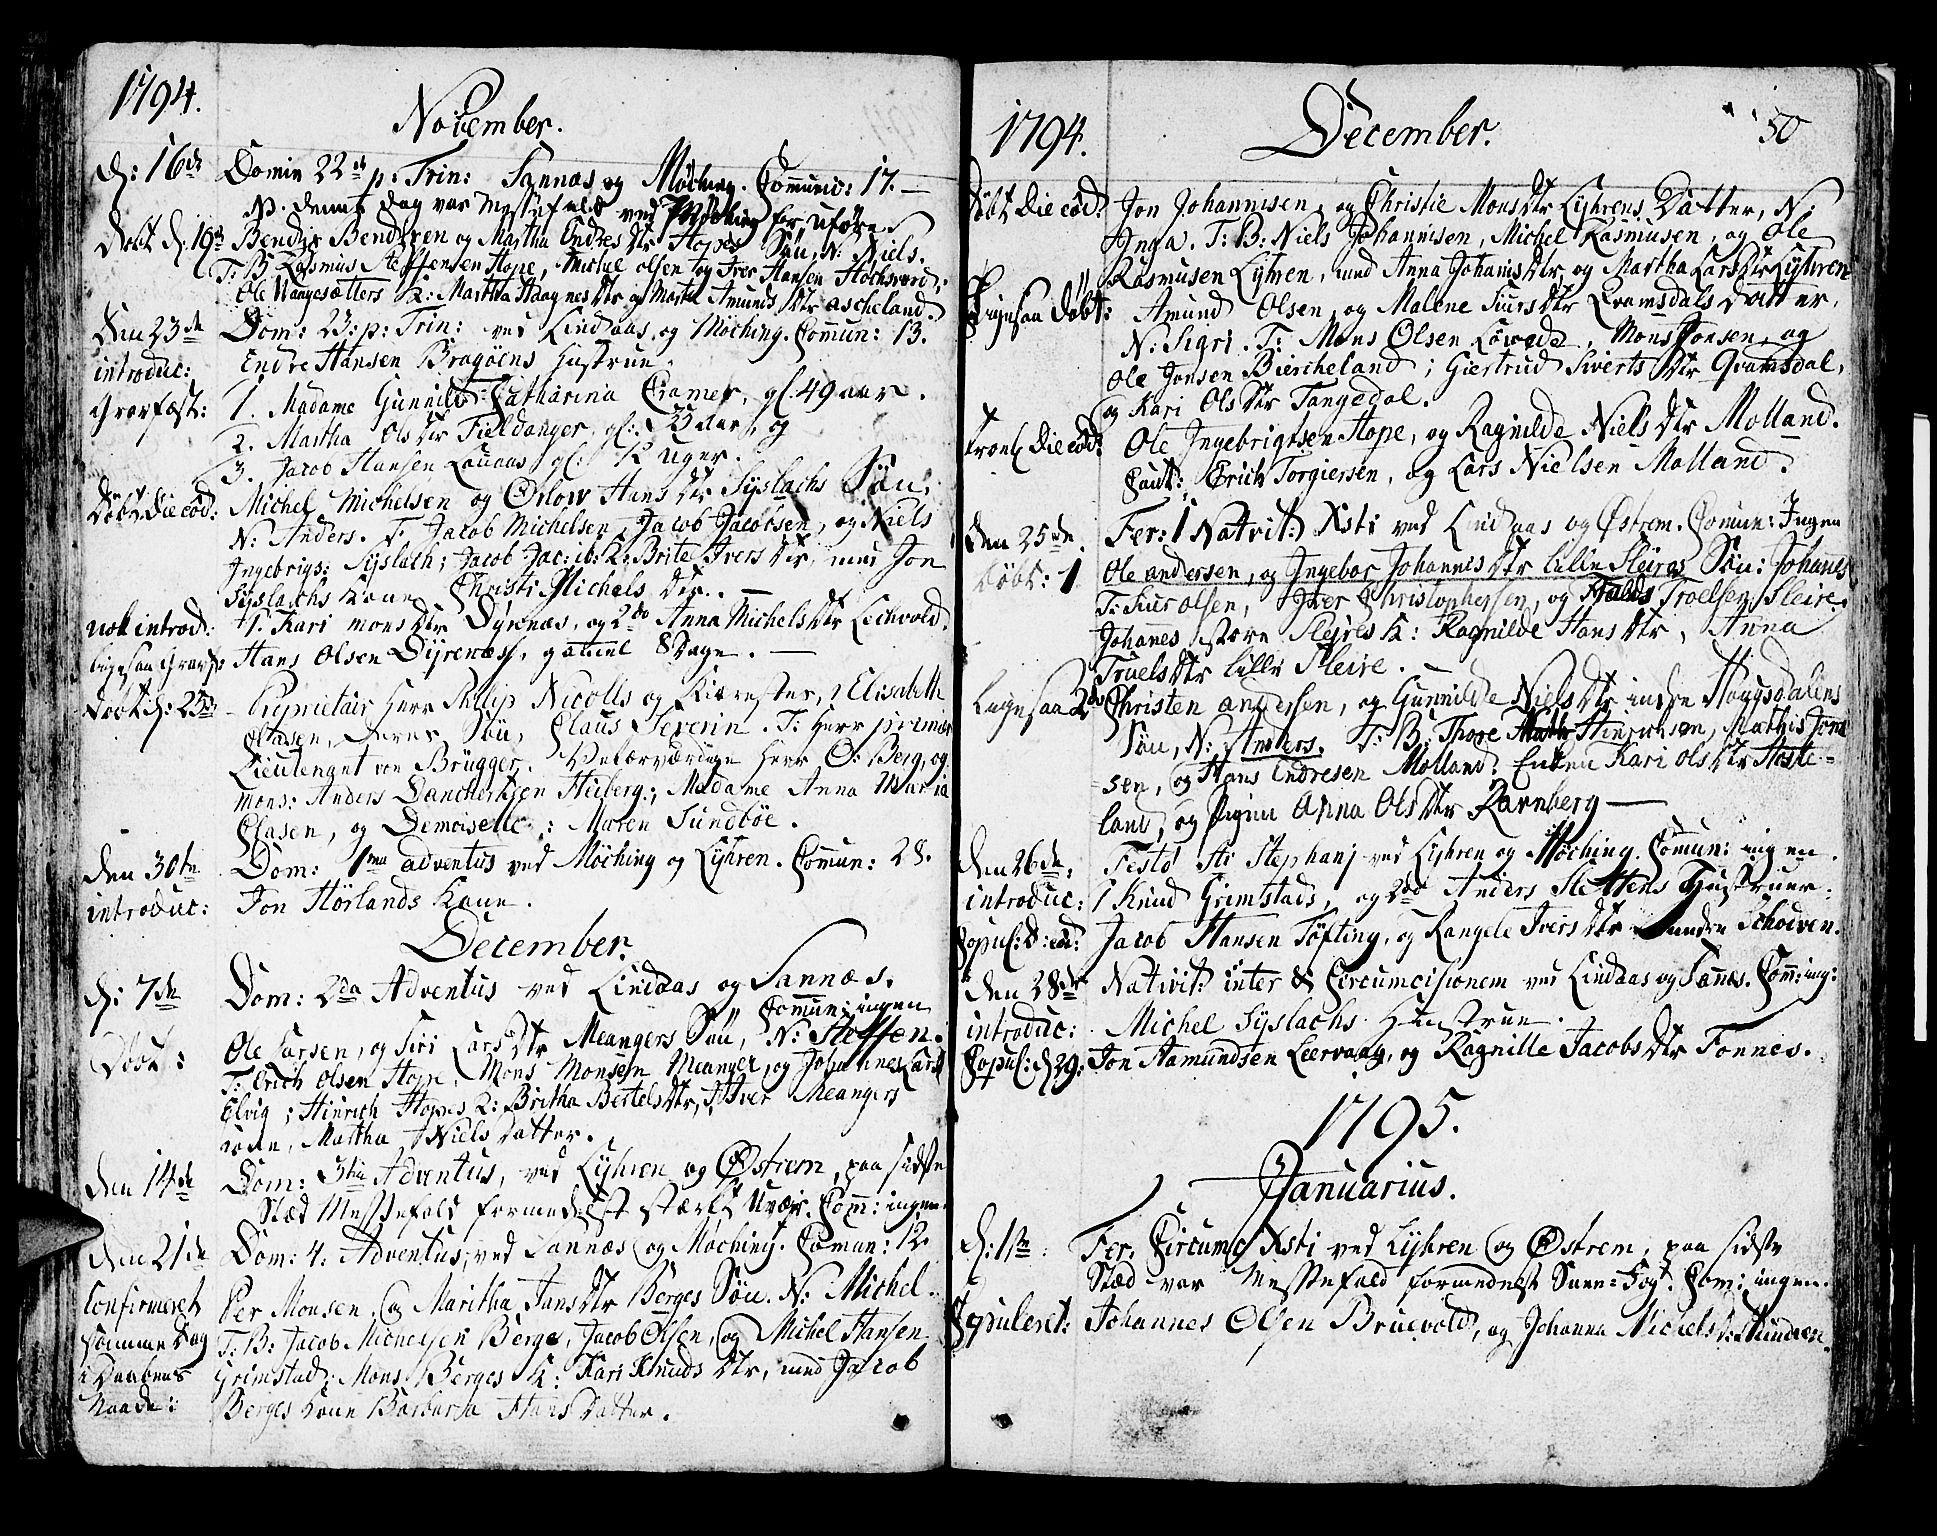 1794.
November.
d: 16de Domin 22de p: Trin: Sannæs og Møching. Comunic: 17. —
NB. denne dag var Messefald ved Møching for uføre
Døbt d. 19de Bendix Bendixen og Martha Endres Dtr Hopes Søn, N: Niels.
T: B Rasmus Steffensen Hope, Michel olsen og Iver Hansen
Ole Wangesætters K: Martha Haagnes Dtr og Marte Amunds Dtr ascheland.
Den 23de Dom: 23: p: Trin: ved Lindaas og Møching. Commun: 13.
introduc: Endre Hansen Bragøens Hustrue.
Gravfæst: 1. Madame Gunnild Catharina Cramer, gl. 49 aar.
2. Martha Ols Dtr Fieldanger, gl: 33 aar, og
3. Jacob Hansen Louaas gl: 12 uger.
Døbt Die eod: Michel Michelsen og Orlow Hans Dtr Syslachs Søn,
N: Anders. T. Jacob Michelsen, Jacob Jacobsen, og Niels
Ingebrigs: Syslach; Jacob Jac: ib: K: Brite Ivers Dtr, med Jon
Syslachs Kone Christi Michels Dtr. —
nok introd: 1. Kari mons Dtr Dyrenæs, og 2do Anna Michels Dtr Lechvold.
ligesaa Gravf: Hans Olsen Dyrenæs, gammel 8 Dage. —
Døbt d: 25de Proprietair Herr Philip Nicolls og Kiæreste, Elisabeth
Clasen, deres Søn, Claus Severin. T: Herr primier
Lieutenant von Brügger. Velærværdige Herr O: Berg, og
Mons: Anders Danchertsen Hieberg; Madame Anna Maria
Clasen, og Demoiselle: Maren Sundbøe.
Den 30te Dom: 1ma adventus ved Møching og Lyhren. Comun: 28.
introduc: Jon Hørlands Kone.
December.
d: 7de Dom: 2da Adventus ved Lindaas og Sannæs.
Comun: ingen
Døbt: Ole Larsen, og Siri Lars Dtr Meangers Søn, N: Steffen.
T: Erich Olsen Hope, Mons Monsen Meanger, og Johannes Lars:
Elvig; Hinrich Hopes K: Britha Bertels Dtr, Iver Meangers
kone, Martha Niels Datter.
Den 14de Dom: 3tia Adventus, ved Lyhren og Østrem, paa sidste
Stæd Messefald formedelst stærk uveir. Com: ingen.
Den 21de Dom: 4. Adventus, ved Sannæs og Møching. Comun: 12.
Confirmeret Per Monsen, og Maritha Jans Dtr Berges Søn. N: Michel
samme Dag T: B: Jacob Michelsen Berge, Jacob Olsen, og Michel Hansen
i Daabens Grimstad; Mons Berges K: Kari Knuds Dtr, med Jacob
Naade: Berges kone Barbara Hans Datter.
1794.
December.
50
Døbt Die eod: Jon Johannisen, og Christie Mons Dtr Lyhrens Datter, N:
Inga. T: B: Niels Johannisen, Michel Rasmusen, og Ole
Rasmusen Lyhren, med Anna Johanis Dtr og Martha Lars Dtr Lyhren
Ligesaa Døbt: Amund Olsen, og Malene Siurs Dtr Qvamsdals datter,
N: Sigri. T: Mons Olsen, Mons Jonsen, og
Ole Jonsen Biercheland; Giertrud Siverts Dtr Qvamsdal,
og Kari Ols Dtr Tangedal.
trol: Die eod: Ole Ingebrigtsen Hope, og Ragnilde Niels Dtr Molland.
Caut: Erich Torgiersen, og Lars Nielsen Molland.
Den 25de Fer: 1 Nativit: Xsti ved Lindaas og Østrem. Comun: Ingen
Døbt: 1 Ole andersen, og Ingebor Johannes Dtr lille Sleires Søn: Johanes
T: Siur olsen, Iver Christophersen, og Troelsen Sleire.
Johanes store Slejres K: Ragnilde Hans Dtr, Anna
Truels Dtr lille Sleire. —
Ligesaa 2do Christen andersen, og Gunnilde Niels Dtr indre Høygsdalens
Søn, N: Anders. T: B: Thore Hinrichsen, Mathis Jons
sen, og Hans Endresen Molland. Enken Kari Ols Dtr Aaste-
land, og Pigen Anna Ols Dtr Ravnberg —
Den 26de Festo Sti Stephanj ved Lyhren og Møching. Comun: ingen.
introduc: 1 Knud Grimstads, og 2do Anders Slettens Hustruer.
Copul: d: eod: Jacob Hansen Tøfting, og Rangele Ivers Dtr indre Schodven.
Den 28de Nativit: inter & Circumcisionem ved Lindaas og Sanæs. Com: ing:
introduc: Michel Syslachs Hustrue.
Copul: d 29: Jon Aamundsen Leervaag, og Ragnille Jacobs Dtr Fonnes.
1795.
Januarius.
d: 1te Fer. Circumc Xsti ved Lyhren og Østrem, paa sidste
Stæd var Messefald formedelst Snee-Fog. Com: ingen.
Copuleret: Johannes Olsen Bruevold, og Johanna Michels Dtr